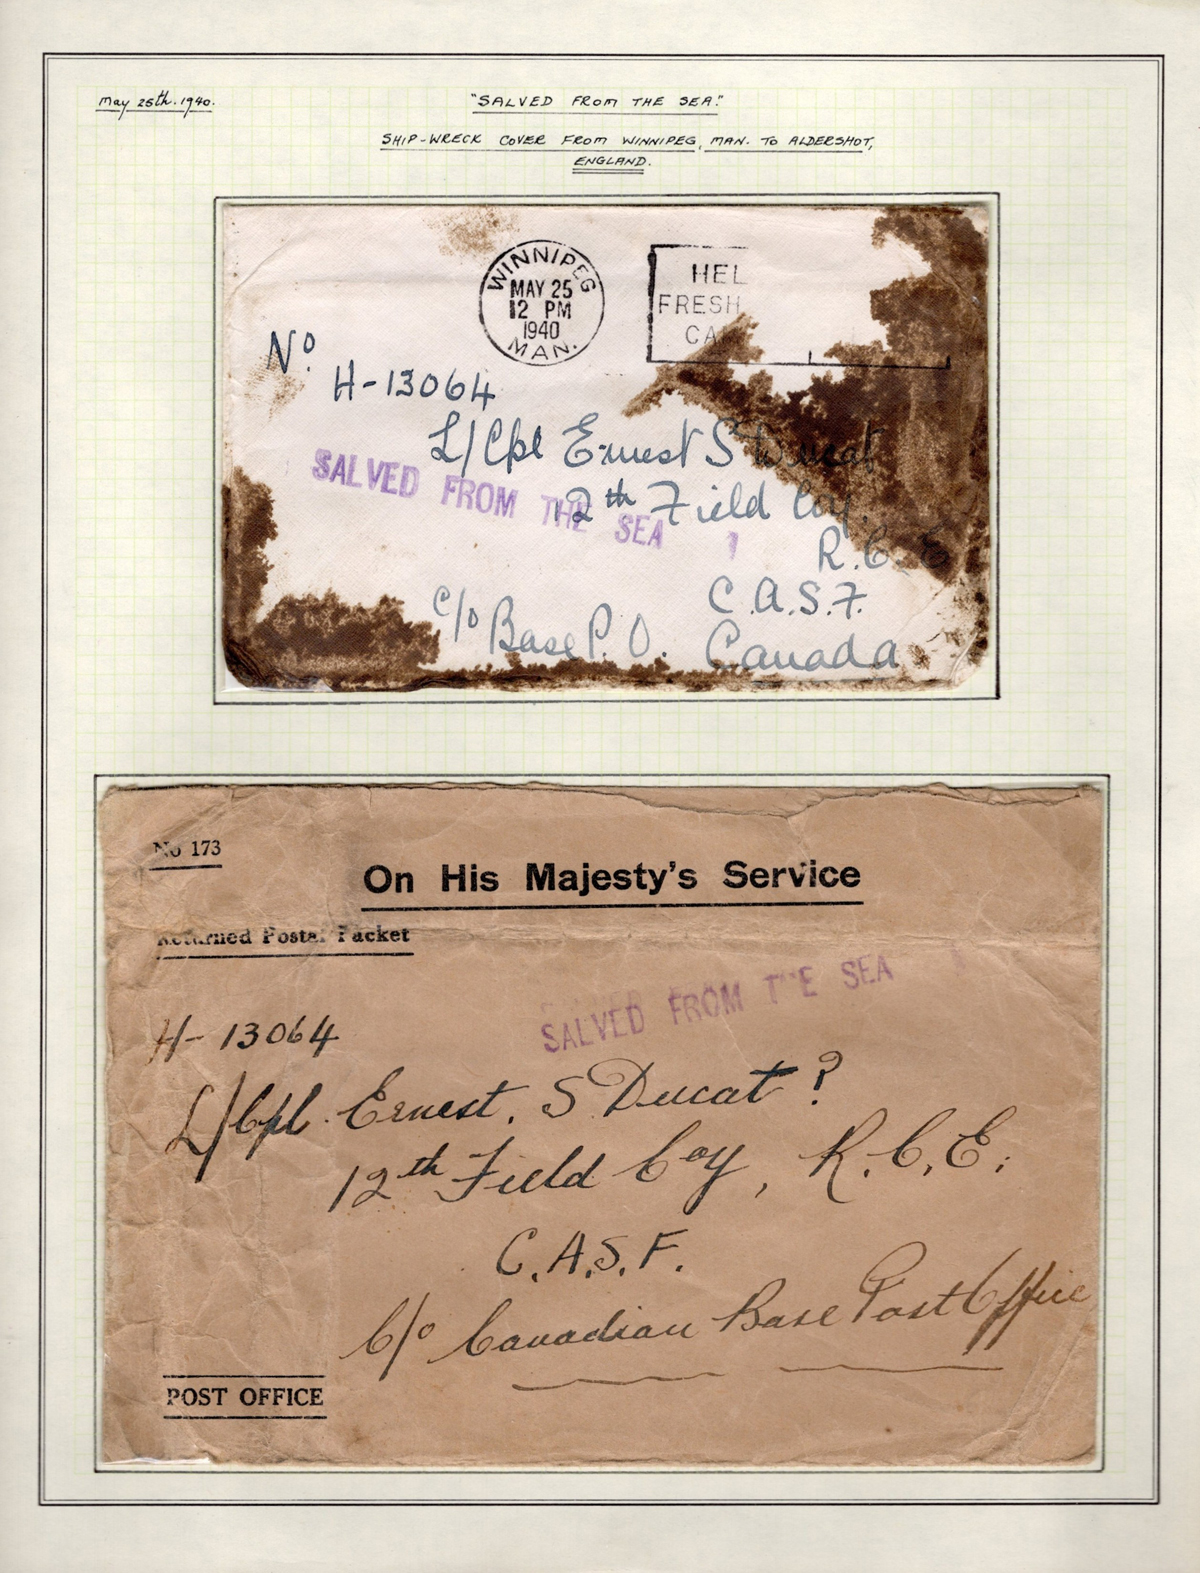 May 25th. 1940.
"SALVED FROM THE SEA."
SHIP-WRECK COVER FROM WINNIPEG, MAN. TO ALDERSHOT,
ENGLAND.
WINNIPEG
MAY 25
12 PM
1940
MAN.
HEL
FRESH
CA
No.
H-13064
L/Cpl Ernest S Ducat
12th Field Coy.
SALVED FROM THE SEA
R.C.E
C.A.S.F.
c/o Base P.O. Canada
No 173
On His Majesty's Service
Returned Postal Packet
SALVED FROM THE SEA
H-13064
L/Cpl. Ernest. S Ducat ?
12th Field Coy, R.C.E.
C.A.S.F.
C/o Canadian Base Post Office
POST OFFICE